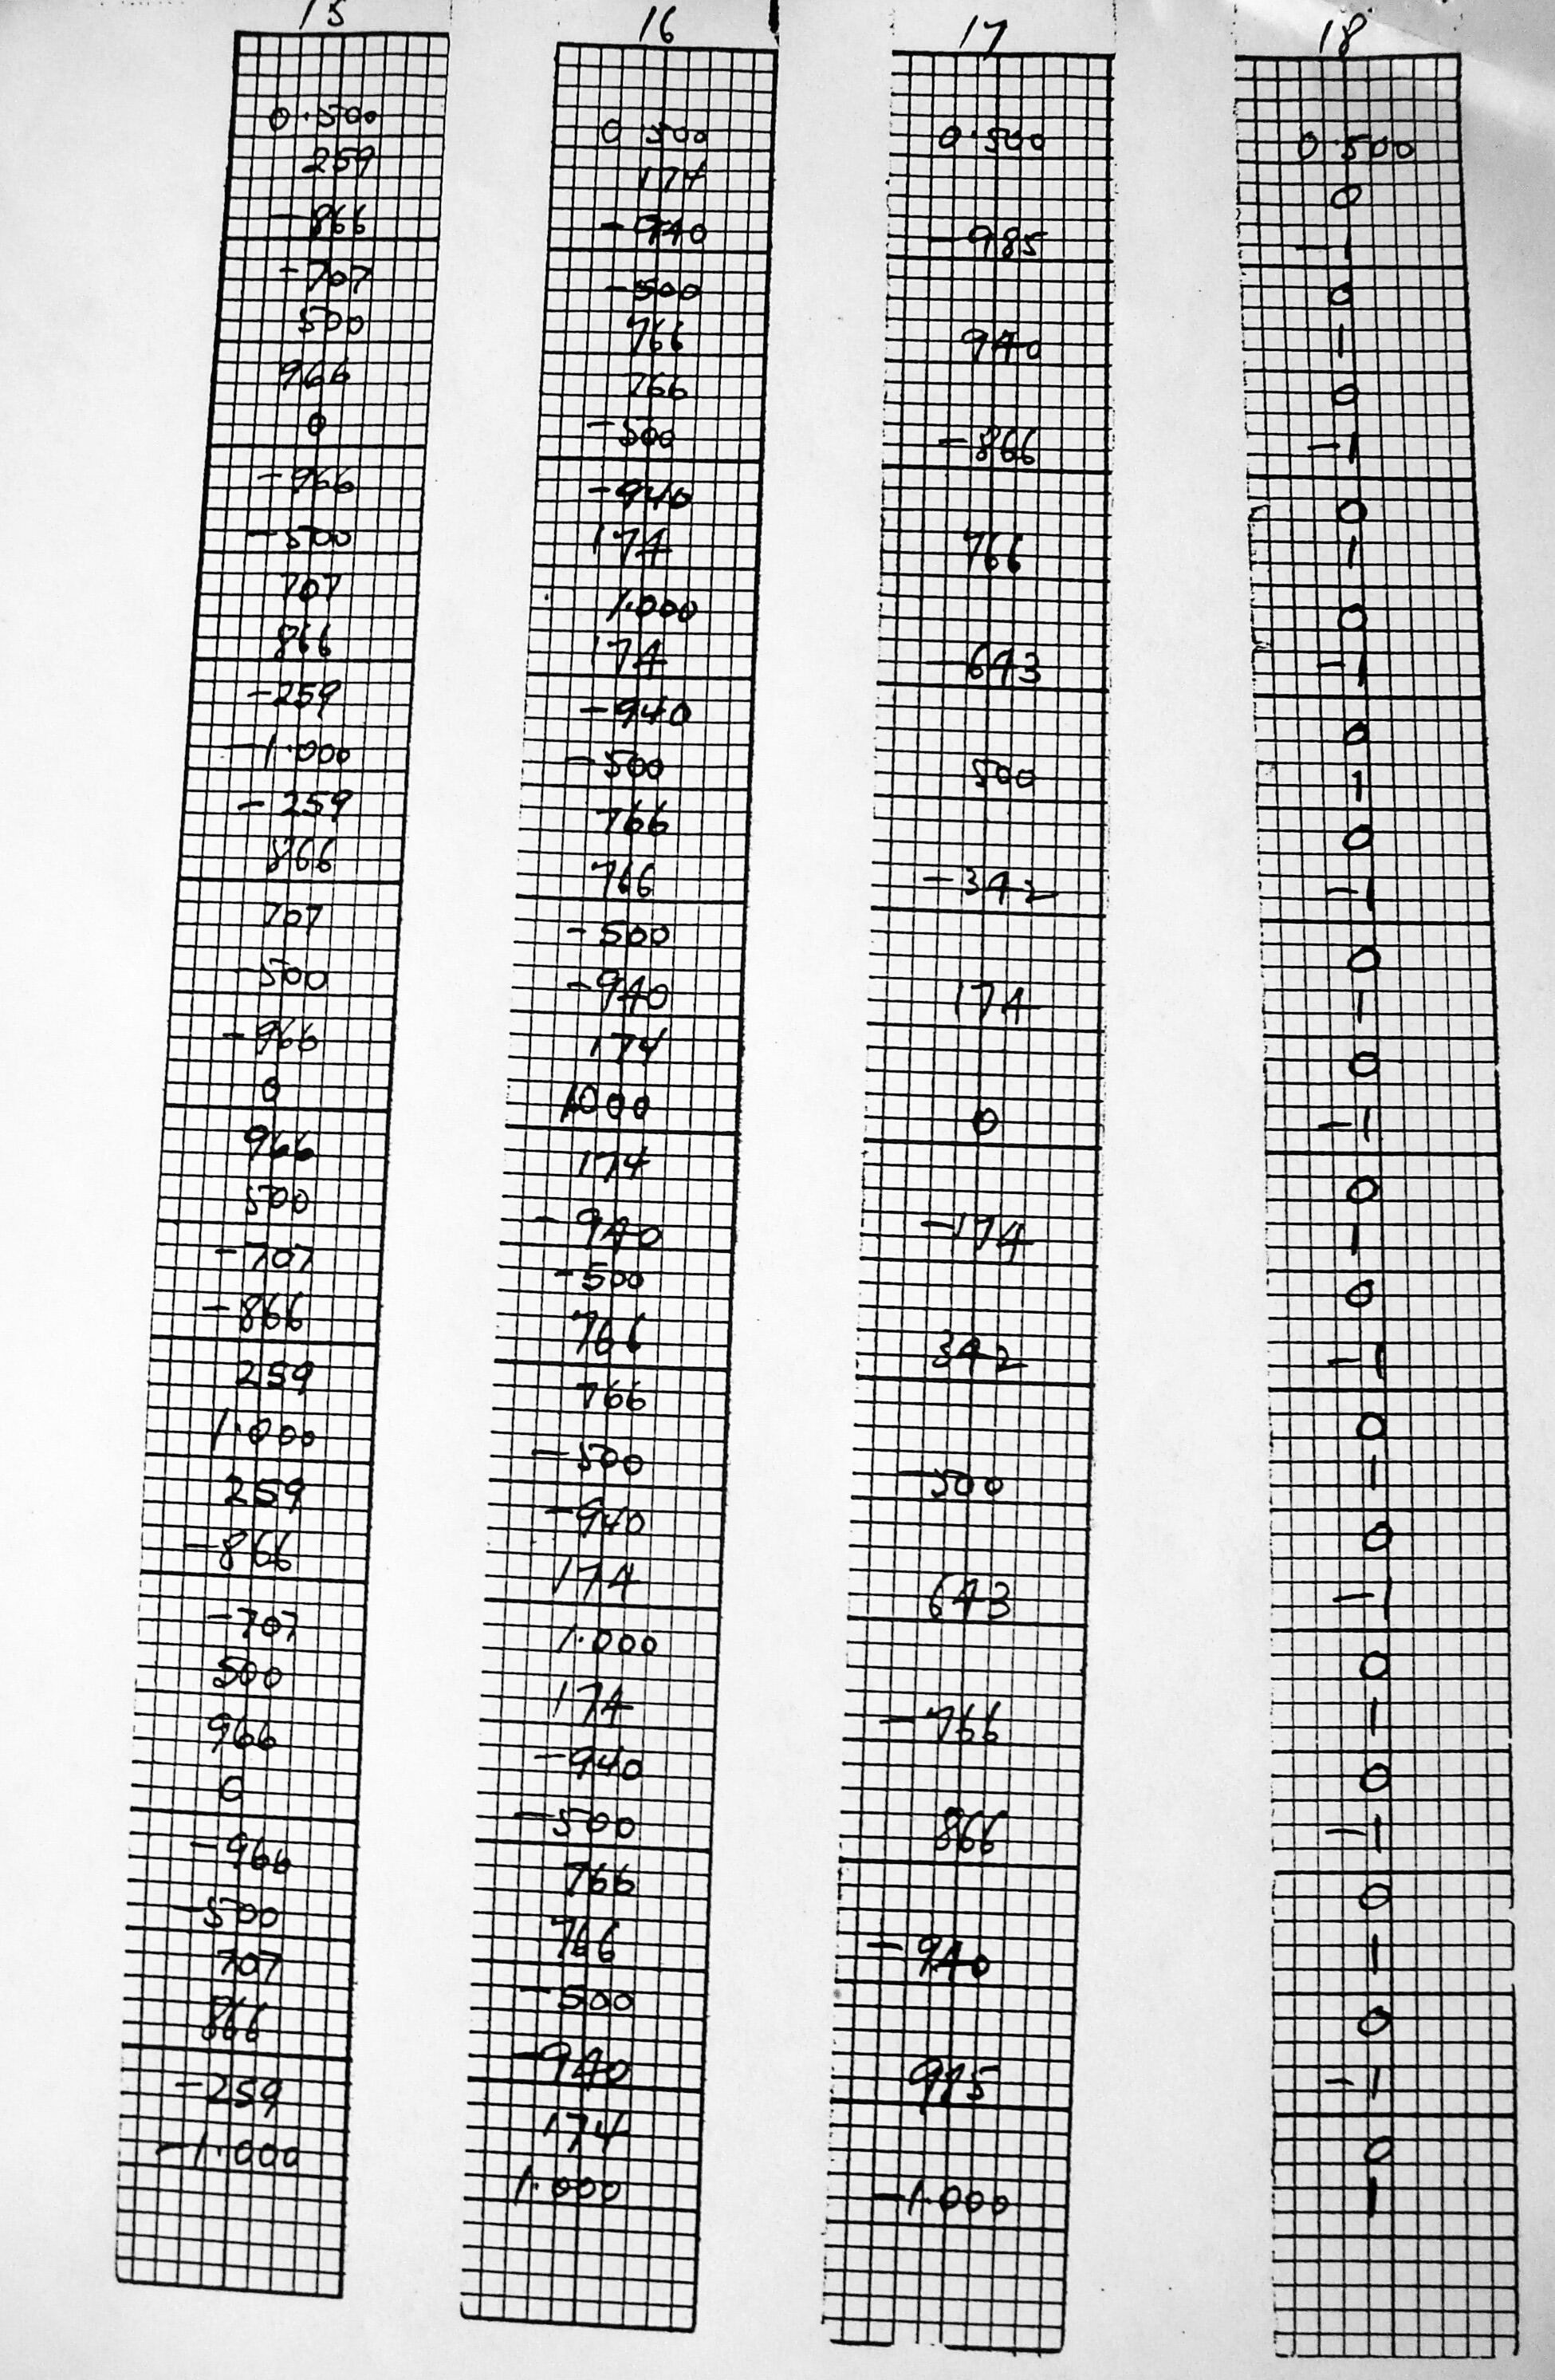 15
0.500
259
-866
-707
500
966
0
-966
-500
707
866
-259
-1.000
-259
866
707
-500
-966
0
966
500
-707
-866
259
1.000
259
-866
-707
500
966
0
-966
-500
707
866
-259
-1.000
16
0.500
174
-940
-500
766
766
-500
-940
174
1.000
174
-940
-500
766
766
-500
-940
174
1.000
174
-940
-500
766
766
-500
-940
174
1.000
174
-940
-500
766
766
-500
-940
174
1.000
17
0.500
-985
940
-866
766
-643
500
-342
174
0
-174
342
-500
643
-766
866
-940
985
-1.000
18
0.500
0
-1
0
1
0
-1
0
1
0
-1
0
1
0
-1
0
1
0
-1
0
1
0
-1
0
1
0
-1
0
1
0
-1
0
1
0
-1
0
1